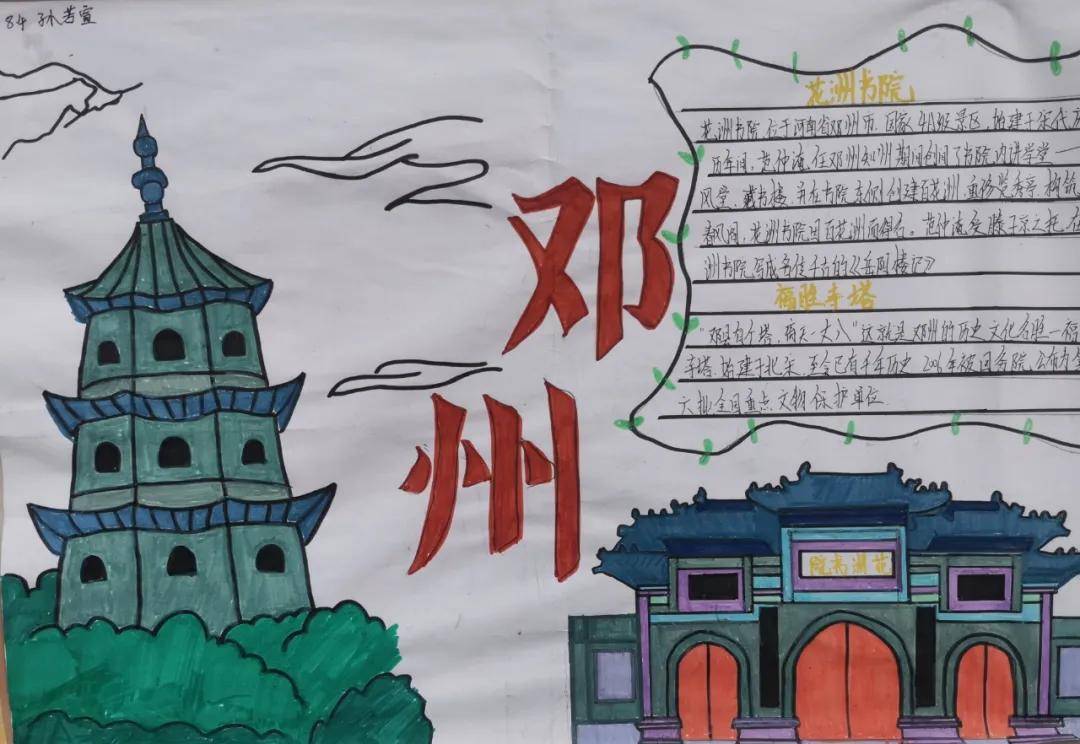 84 孙若宣
邓
州
花洲书院
花洲书院位于河南省邓州市.国家4A级景区.始建于宋代
历年间,范仲淹任邓州知州期间创间了书院内讲学堂一
风堂、藏书楼.并在书院东侧创建百花洲.重修览秀亭.构筑
春风阁.花洲书院因百花洲而得名。范仲淹受滕子京之托.在
洲书院写成名传千古的《岳阳楼记》
福胜寺塔
"邓县有个塔,离天一丈八"这就是邓州的历史文化名胜一福
寺塔.始建于北宋.至今已有千年历史.年被国务院公布为
六批全国重点文物保护单位
院书洲花